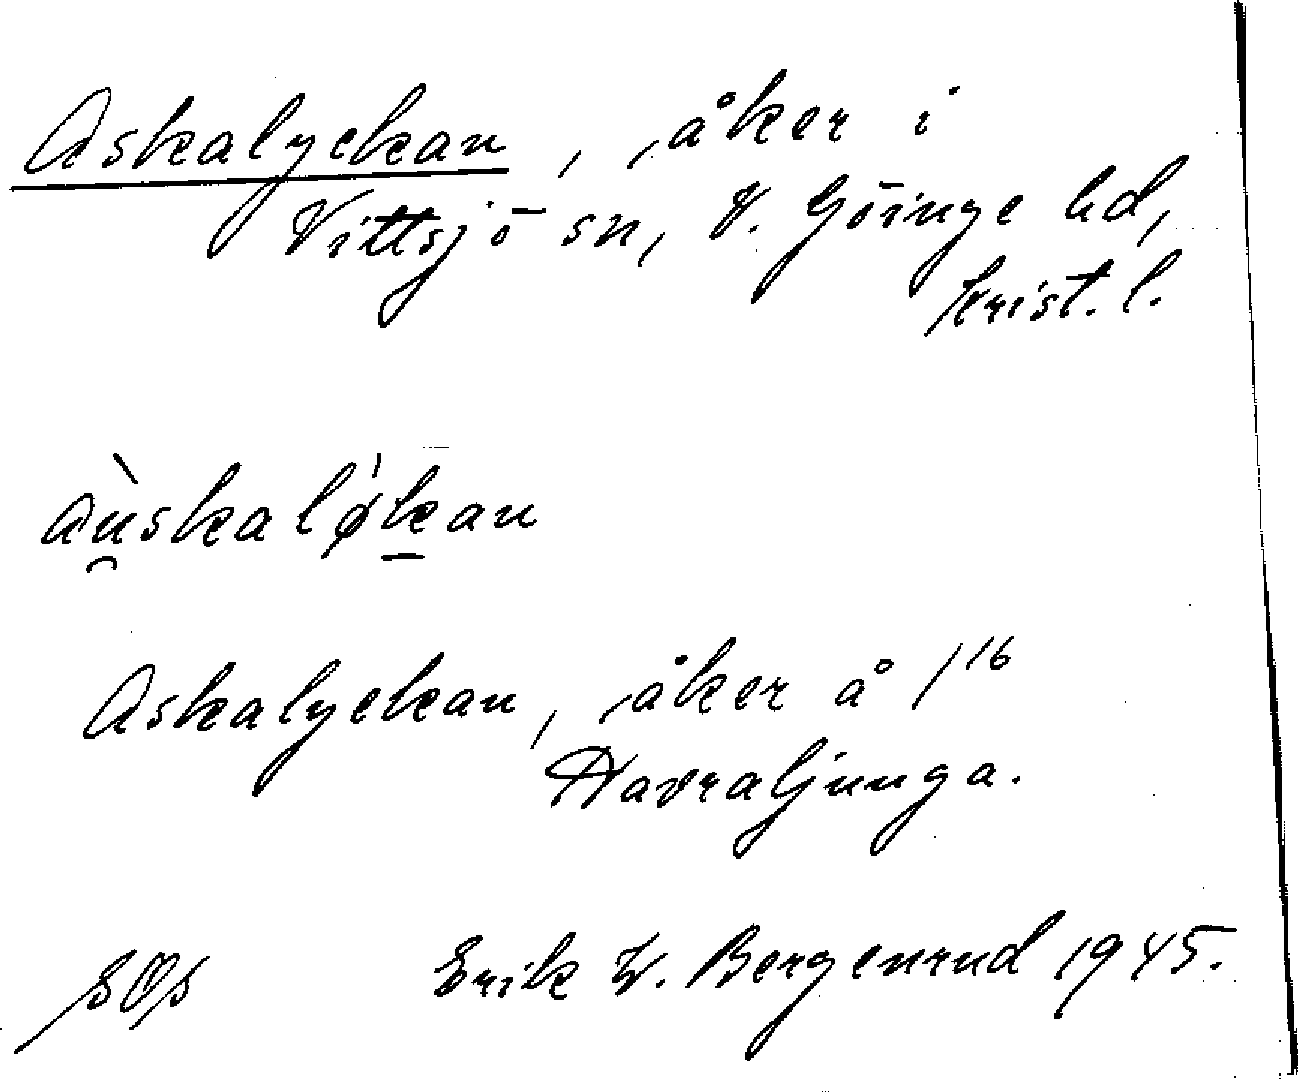 Askalyckan, åker i
Vittsjö sn, V. Göinge hd,
Krist. l.
àu̯skalø̍k̲an
Askalyckan, åker å 1¹⁶
Havraljunga.
Erik W. Bergenrud 1945.